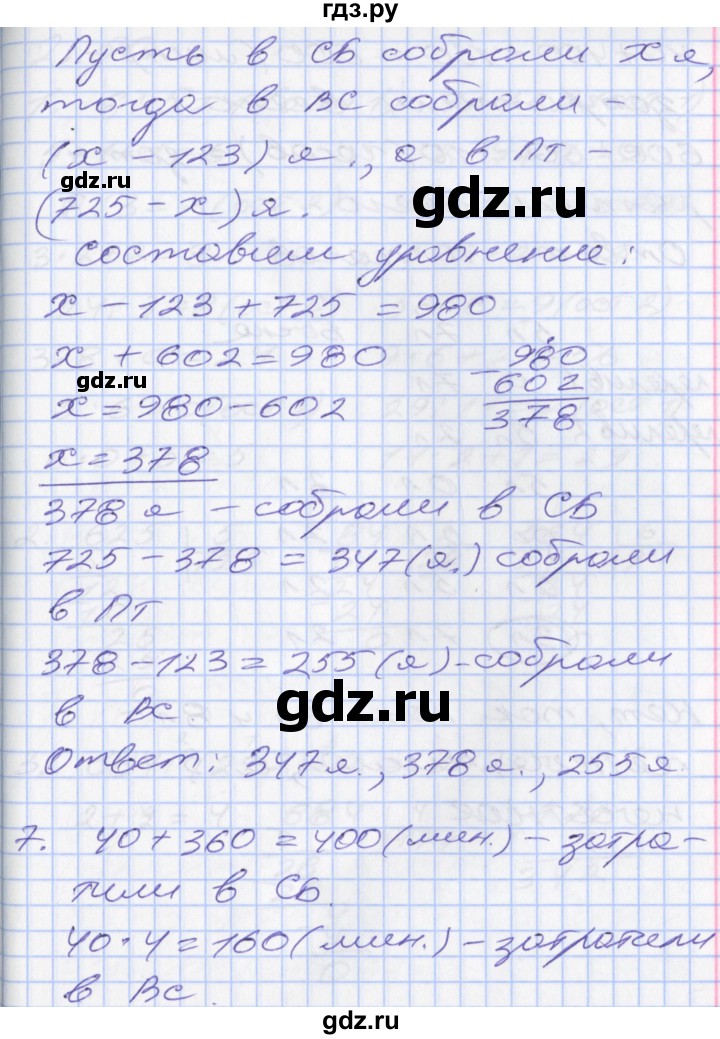 гдз.ру
Пусть в СБ собрали х я,
тогда в ВС собрали -
(х - 123) я., а в Пт -
gdz.ru
gdz.ru
(725 - х) я.
составим уравнение:
х - 123 + 725 = 980
х + 602 = 980
- 980
gdz.ru
602
х = 980 - 602
378
х = 378
378 я - собрали в СБ
725 - 378 = 347 (я.) собрали
в Пт
378 - 123 = 255 (я) - собрали
gdz.ru
в ВС.
Ответ: 347 я., 378 я., 255 я.
7. 40 + 360 = 400 (мин.) - затра-
тили в СБ.
40 · 4 = 160 (мин.) - затратили
в Вс.
gdz.ru